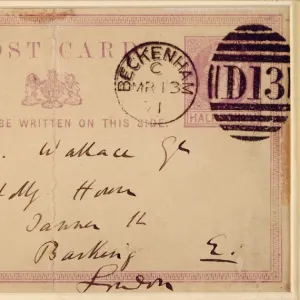 OST CARD
BE WRITTEN ON THIS SIDE.
BECKENHAM
C
MR 13
71
D13
HALF
Wallace
Holly House
Tanner
Barking E.
London